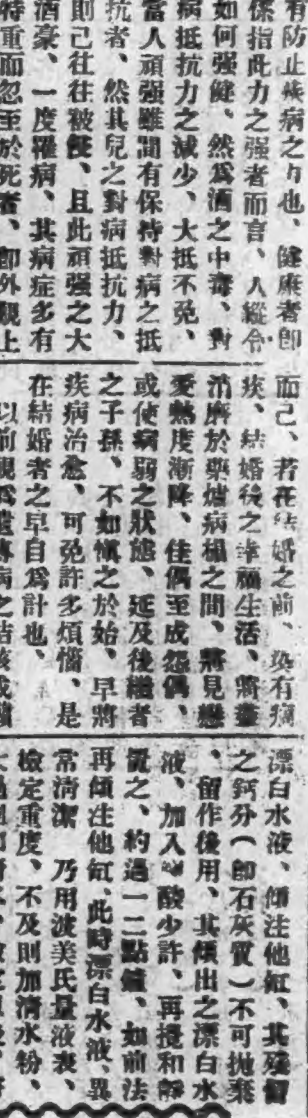 有防止疾病之力也、健康者卽
係指此力之强者而言、人縱令
如何强健、然爲酒之中毒、對
病抵抗力之減少、大抵不免、
當人頑强雖間有保持對病之抵
抗者、然其兒之對病抵抗力、
則已往往被侵、且此頑强之大
酒豪、一度罹病、其病症多有
特重而忽至於死者、卽外觀上
而已、若在結婚之前、染有
疾、結婚後之幸福生活、將盡
消磨於藥爐病榻之間、將見戀
愛熱度漸降、佳偶至成怨偶、
或使病弱之狀態、延及後繼者
之子孫、不如愼之於始、早將
疾病治愈、可免許多煩惱、是
在結婚者之早自爲計也、
以前視爲遺傳病之結核或
漂白水液、傾注他缸、其殘留
之鈣分（卽石灰質）不可拋棄
、留作後用、其傾出之漂白水
液、加入酸少許、再攪和靜
置之、約過一二點鐘、如前法
再傾注他缸、此時漂白水液、異
常淸潔 乃用波美氏量液表、
檢定重度、不及則加淸水粉、